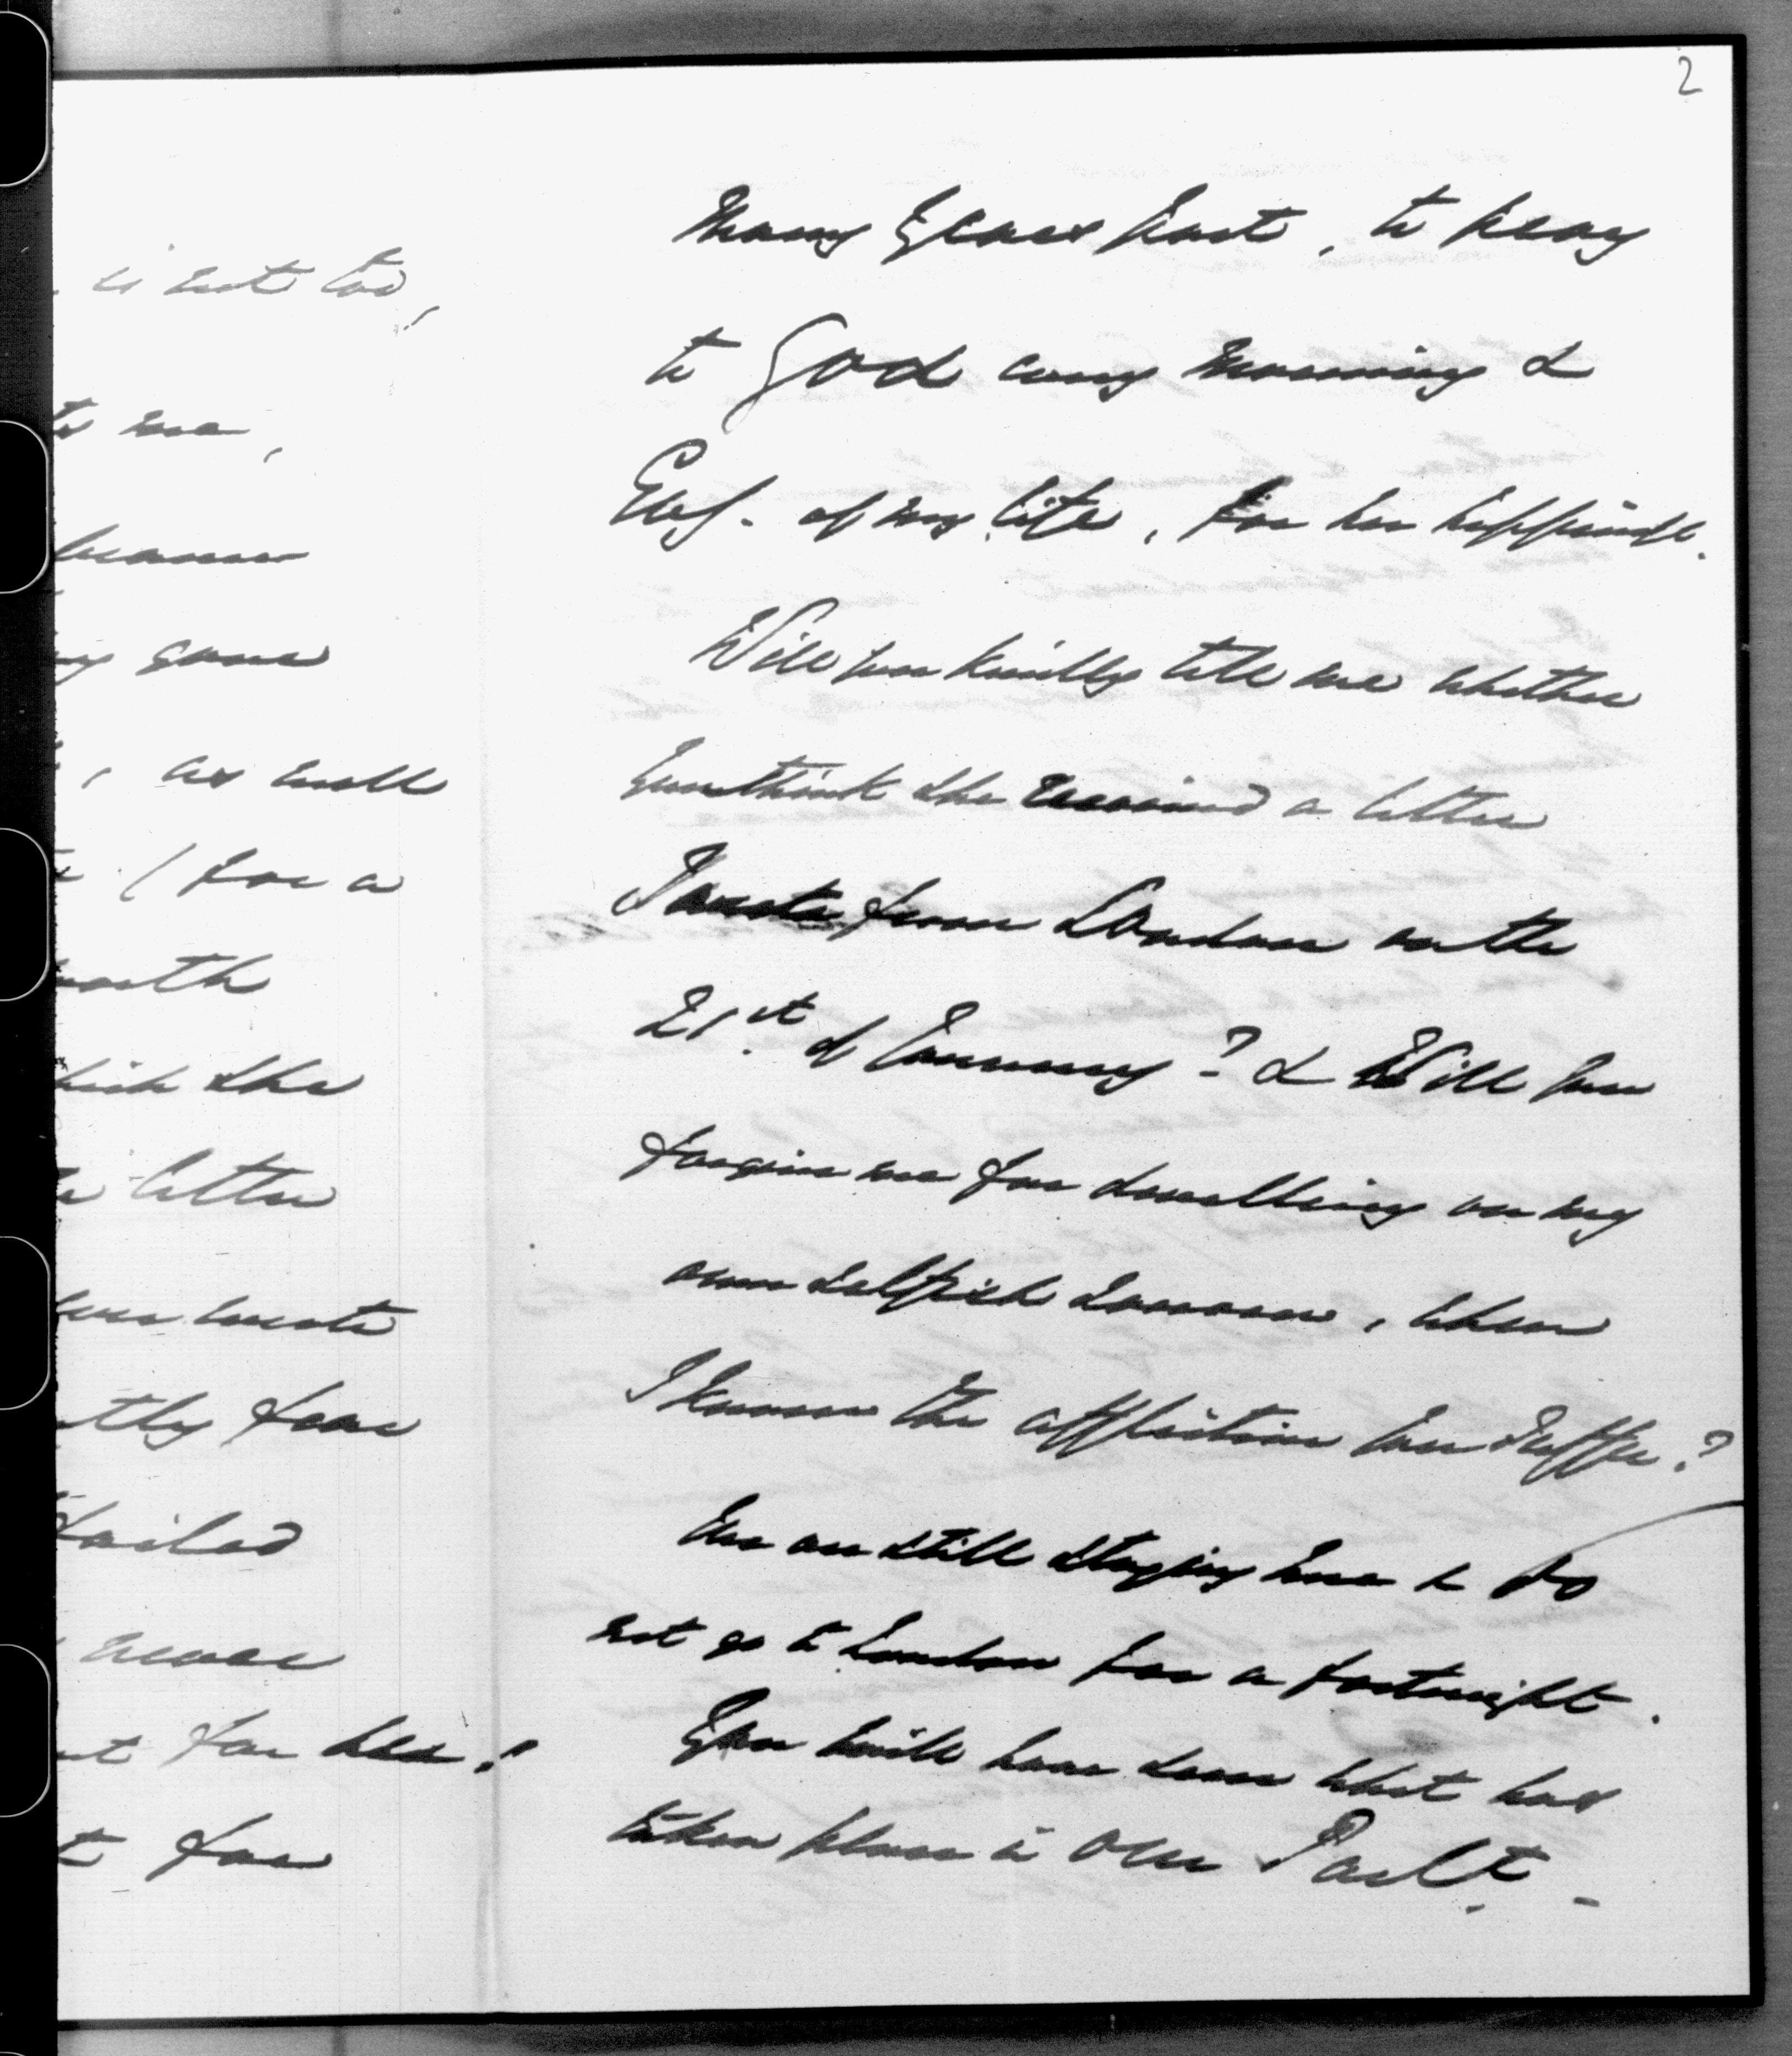 2
many years past, to pray
to God every morning &
Evg. of my life, for her happiness.
Will you kindly tell me whether
you think she received a letter
I wrote from London on the
21st of January? & Will you
forgive me for dwelling on my
own selfish sorrow, when
I know the affliction you suffer?
We are still staying here & do
not go to London for a fortnight.
You will have seen what has
taken place in our Parlt. -
is not too,
to me,
because
gone
, as well
(for a
worth
which she
letter
you wrote
for
failed
never
for her!
for